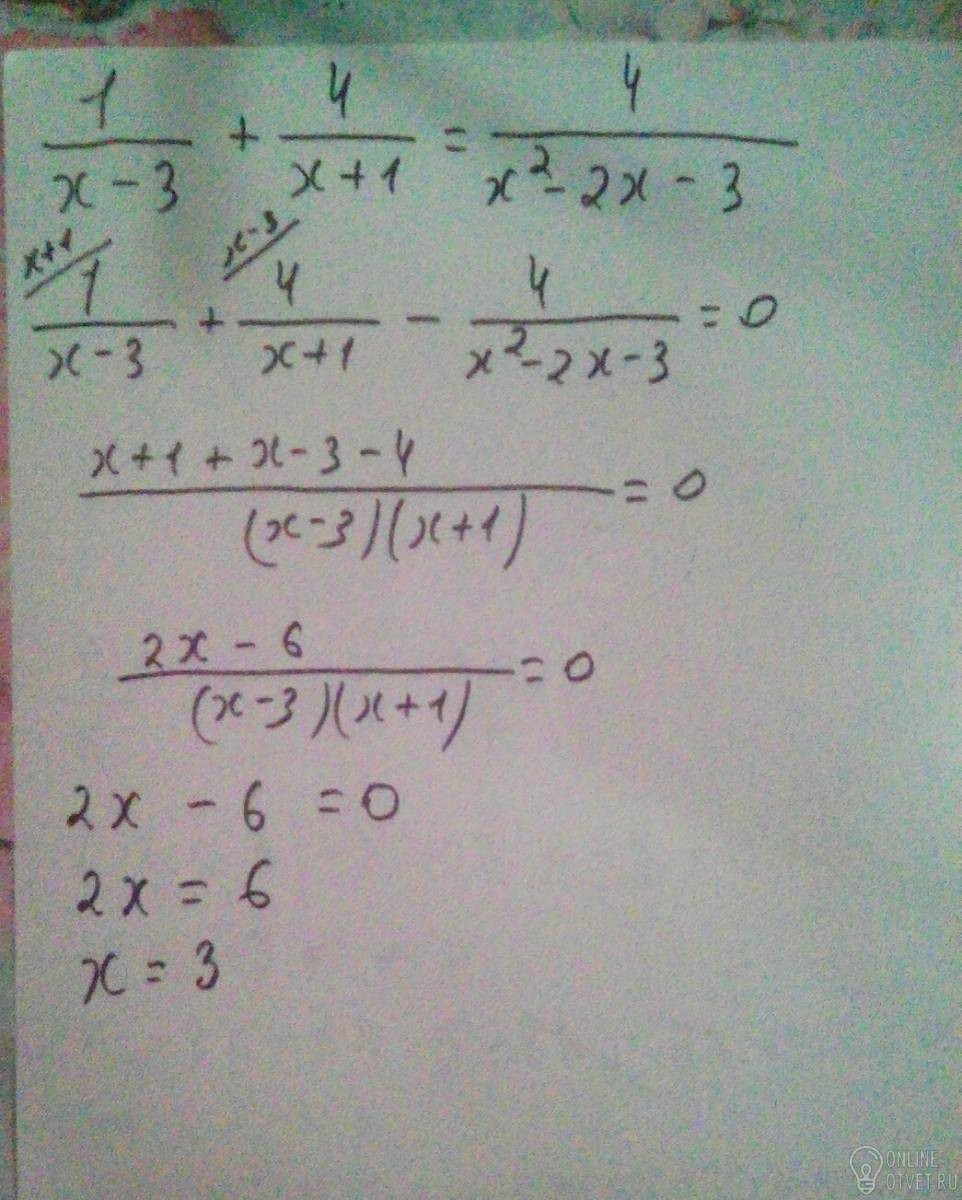 1/(x-3) + 4/(x+1) = 4/(x²-2x-3)
x+1/ 1/(x-3) + x-3/ 4/(x+1) - 4/(x²-2x-3) = 0
(x+1+x-3-4)/((x-3)(x+1)) = 0
(2x-6)/((x-3)(x+1)) = 0
2x - 6 = 0
2x = 6
x = 3
ONLINE
OTVET.RU